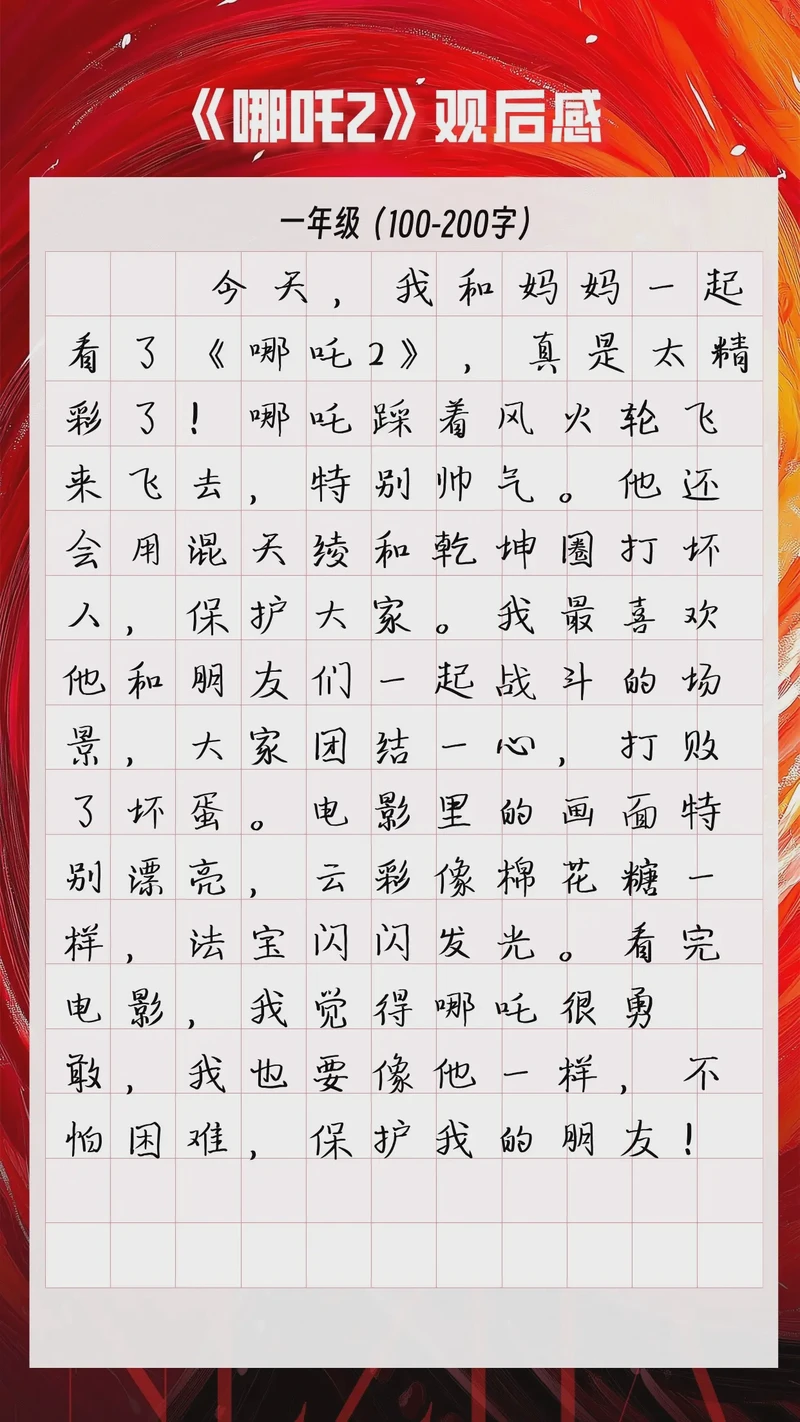 《哪吒2》观后感
一年级（100-200字）
今天，我和妈妈一起
看了《哪吒2》，真是太精
彩了！哪吒踩着风火轮飞
来飞去，特别帅气。他还
会用混天绫和乾坤圈打坏
人，保护大家。我最喜欢
他和朋友们一起战斗的场
景，大家团结一心，打败
了坏蛋。电影里的画面特
别漂亮，云彩像棉花糖一
样，法宝闪闪发光。看完
电影，我觉得哪吒很勇
敢，我也要像他一样，不
怕困难，保护我的朋友！